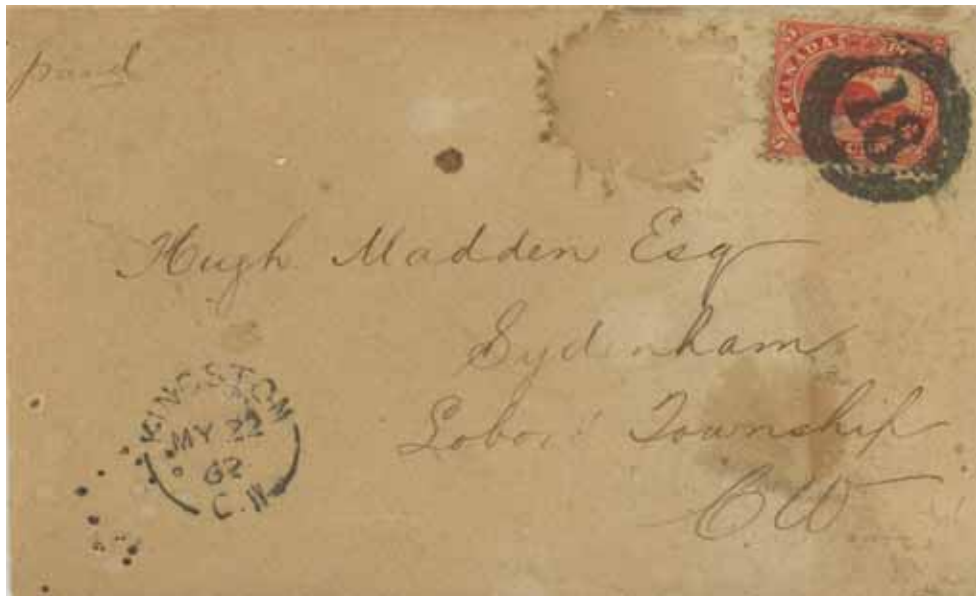 paid
CANADA
18
Hugh Madden Esq
Sydenham
Township
C W
KINGSTON
MY 22
62
C.W